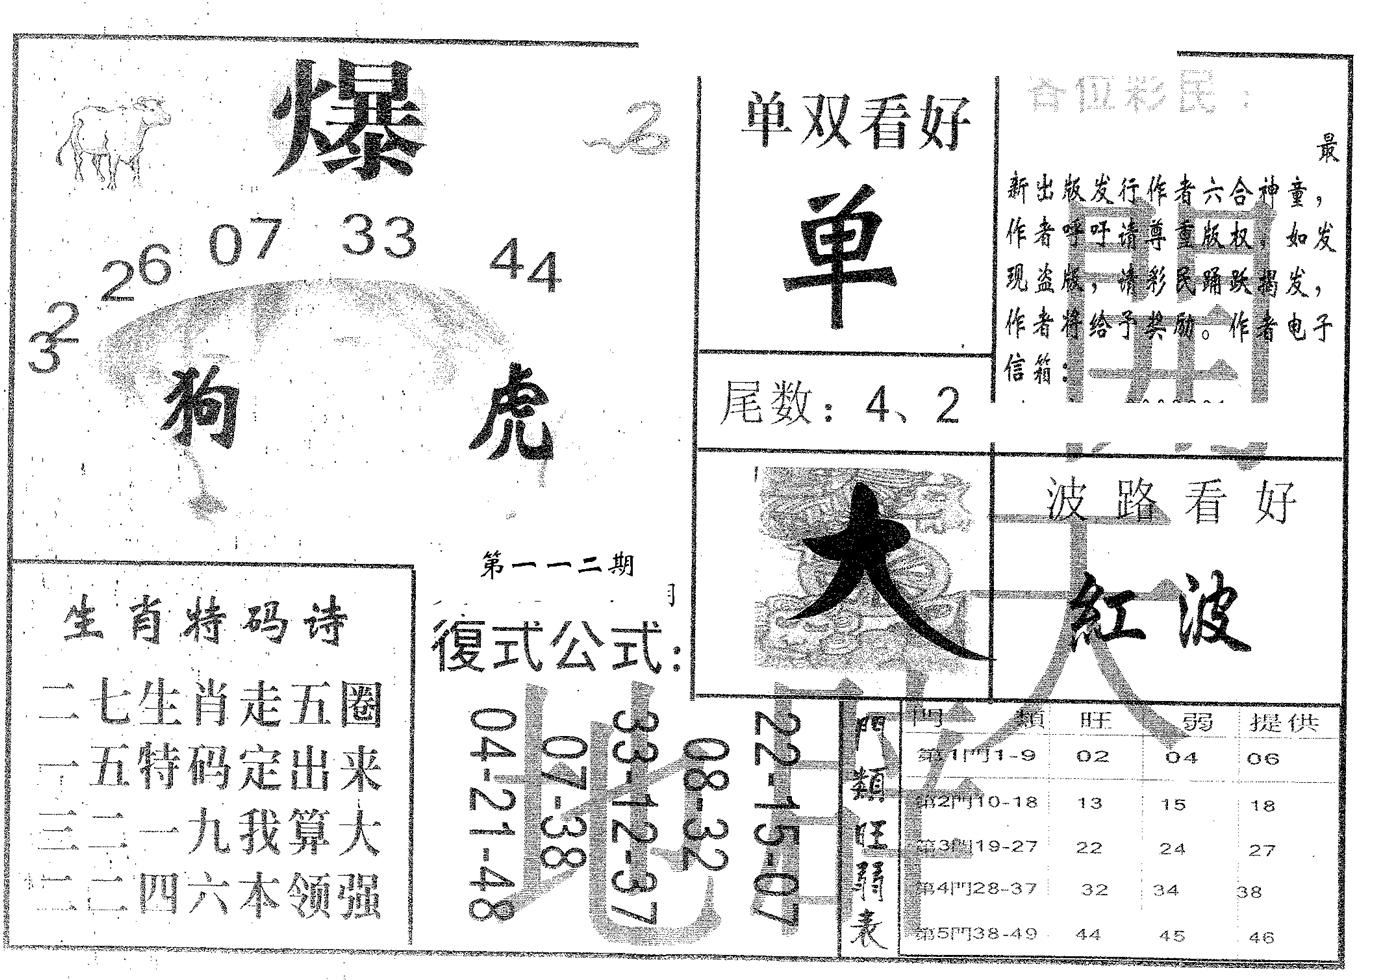 爆
26 07 33 44
32
狗 虎
第一一二期
生肖特码诗
二七生肖走五圈
一五特码定出来
三二一九我算大
二二四六本领强
復式公式:
04-21-48
07-38
33-12-37
08-32
22-15-07
单双看好
单
尾数：4、2
大
各位彩民：
最
新出版发行作者六合神童，
作者呼吁请尊重版权，如发
现盗版，请彩民踊跃揭发，
作者将给予奖励。作者电子
信箱：
波路看好
紅波
門類旺弱表
門類 旺 弱 提供
第1門1-9 02 04 06
第2門10-18 13 15 18
第3門19-27 22 24 27
第4門28-37 32 34 38
第5門38-49 44 45 46